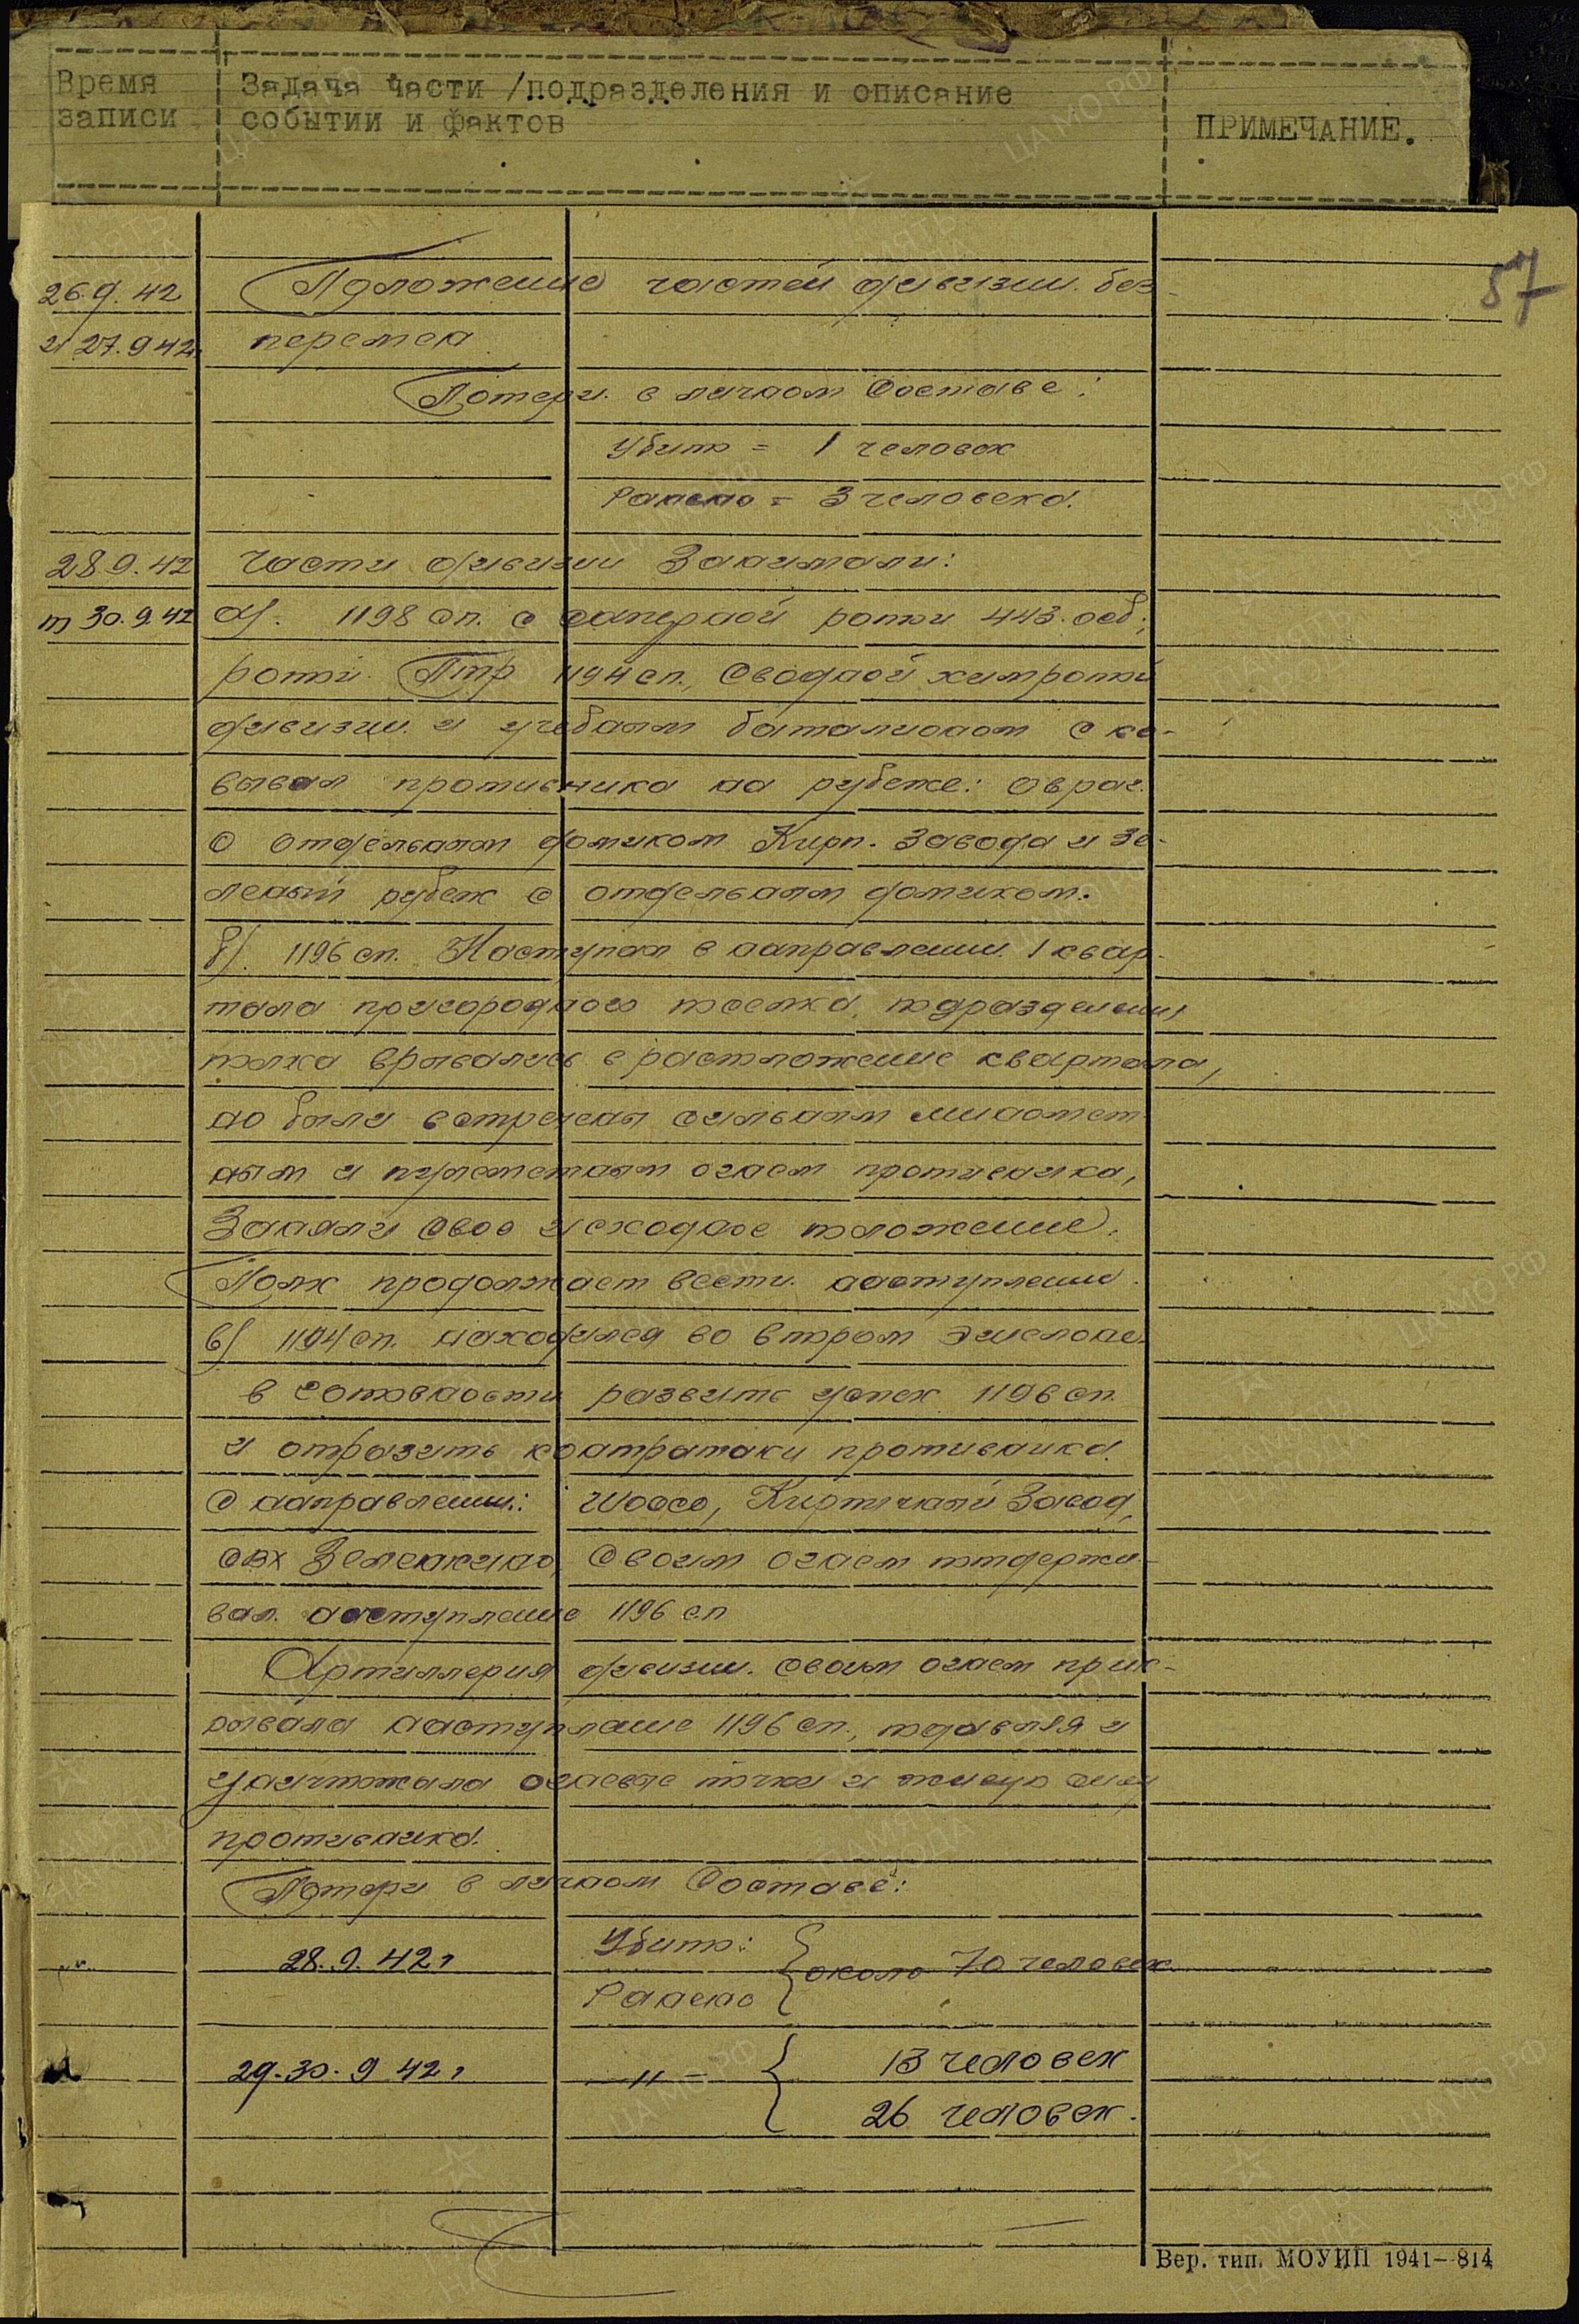 Время записи | Задача части /подразделения и описание событии и фактов | ПРИМЕЧАНИЕ.
57
26.9.42 Положение частей дивизии без
и 27.9.42. перемен
Потери в личном составе:
Убито = 1 человек
Ранено = 3 человека.
28.9.42 Части дивизии Занимали:
по 30.9.42 а). 1198 сп. с саперной роты 443. осб.,
роты Птр 1194 сп., Сводной химроты
дивизии и учебным баталионом ско-
вывал противника на рубеже: овраг.
с отдельным домиком Кирп. завода и Зе-
леный рубеж с отдельным домиком.
б). 1196 сп. Наступал в направлении 1 квар-
тала пригородного поселка, подразделения
полка врывались в расположение квартала,
но были встречены сильным миномет
ным и пулеметным огнем противника,
Заняли свое исходное положение.
Полк продолжает вести наступление.
в) 1194 сп. находился во втором эшелоне
в готовности развить успех 1196 сп.
и отразить контратаки противника.
С направлении: Шоссе, Кирпичный Завод,
свх Зеленкино, своим огнем поддержи-
вал. наступление 1196 сп
Артиллерия дивизии. своим огнем прик-
рывала наступление 1196 сп., подавляя и
уничтожала огневые точки и живую силу
противника.
Потери в личном Составе:
28.9.42 г Убито: около 70 человек
Ранено
29-30.9 42 г —"— 13 человек
26 человек.
Вер. тип. МОУИП 1941—814
ЦА МО РФ
ПАМЯТЬ НАРОДА